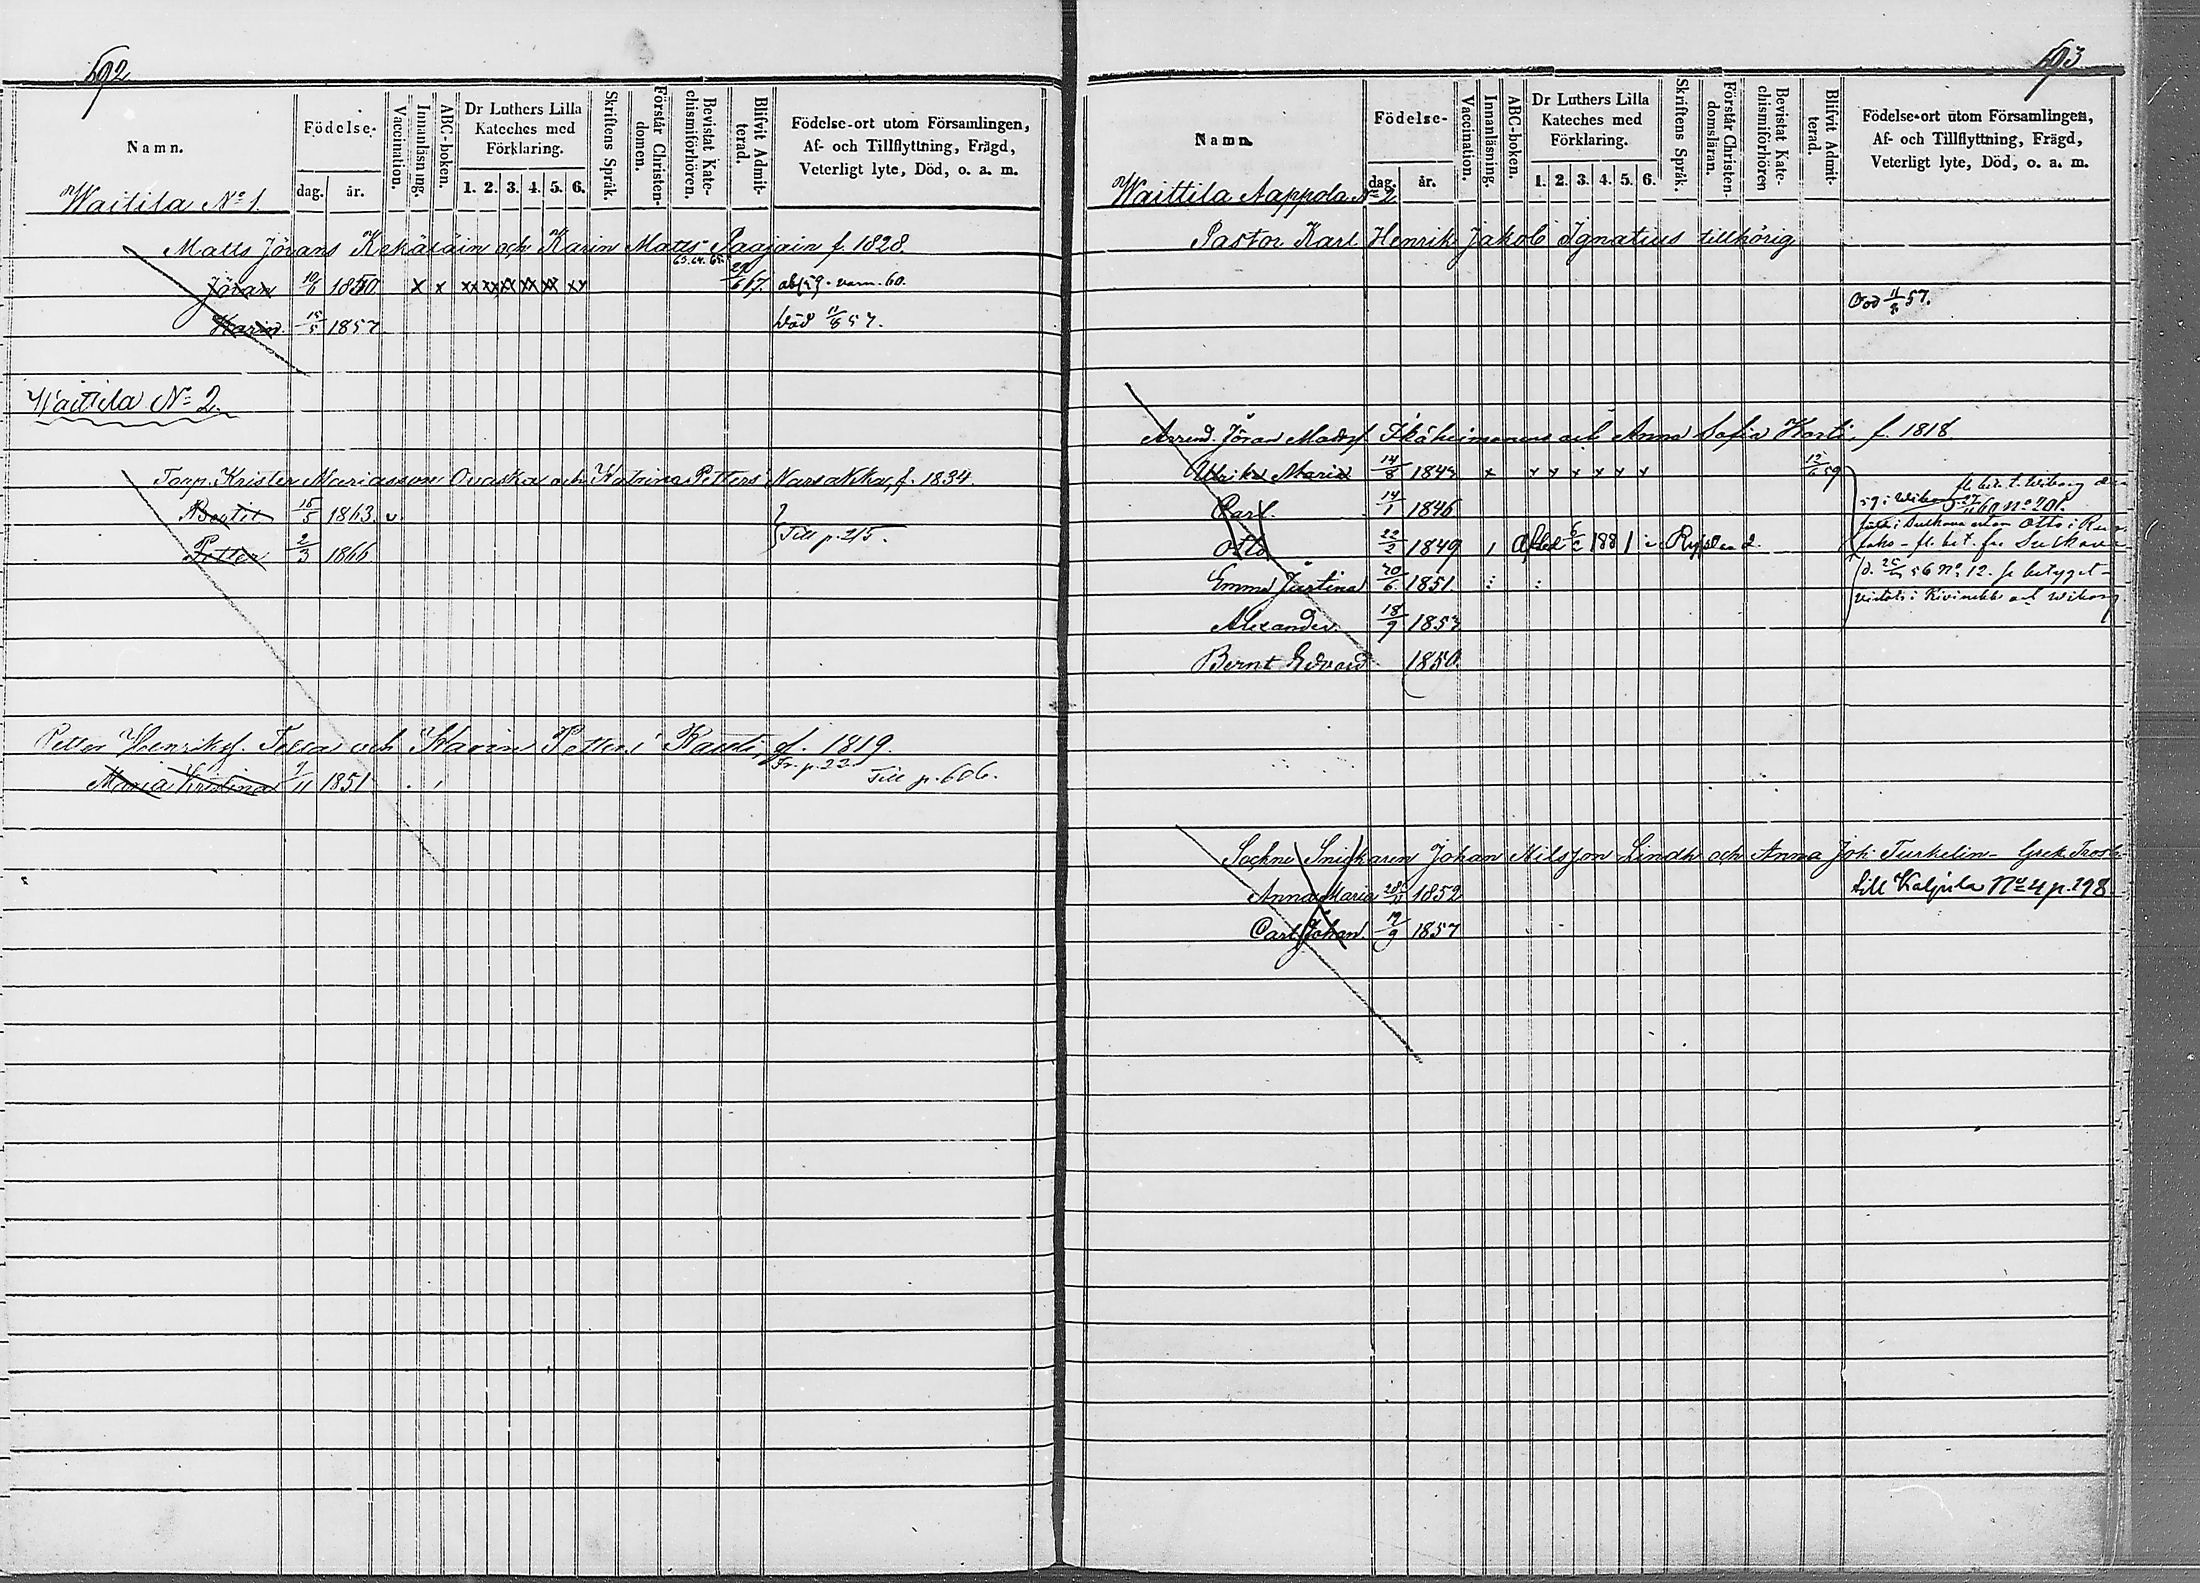 592
Namn.
Födelse-
dag.
år.
Vaccination.
Innanläsning.
ABC-boken.
Dr Luthers Lilla
Kateches med
Förklaring.
1. 2. 3. 4. 5. 6.
Skriftens Språk.
Förstår Christen-
domen.
Bevistat Kate-
chismiförhören.
Blifvit Admit-
terad.
Födelse-ort utom Församlingen,
Af- och Tillflyttning, Frägd,
Veterligt lyte, Död, o. a. m.
Waitila No 1.
Matts Jörans och Karin Matts Paajain f. 1828.
63. 64. 65.
Jöran 10/6 1850. x x xx xx xx xx xx xx 67. 60.
Karin. 15/5 1857 Död 11/8 57.
Waittila No 2.
Torp. Krister Mariasson Ovaska och Katrina Petters f. 1834.
Bertil 15/5 1863. v.
Till p. 215.
Petter 2/3 1866
Petter Henriksf. och Karin Petters f. 1819.
Fr. p. 22
Maria Kristina 7/11 1851 Till p. 606.
593
Namn.
Födelse-
dag.
år.
Vaccination.
Innanläsning.
ABC-boken.
Dr Luthers Lilla
Kateches med
Förklaring.
1. 2. 3. 4. 5. 6.
Skriftens Språk.
Förstår Christen-
domsläran.
Bevistat Kate-
chismiförhören
Blifvit Admit-
terad.
Födelse-ort utom Församlingen,
Af- och Tillflyttning, Frägd,
Veterligt lyte, Död, o. a. m.
Waittila Aappola No 2
Pastor Karl Henrik Jakob Ignatius tillhörig
Död 11/8 57.
Arrend. Jöran Mattsf. och Anna Sofia f. 1818
Ulrika Maria 14/8 184 x x x x x x x 12/6 59
Carl. 14/1 1846
Otto 22/2 1849 1881 i Ryssland.
Emma Justina 20/6 1851.
No 12.
Alexander. 18/9 1857
i Kivinebb och Wiborg
Bernt Edvard 1850.
Sockne Snickaren Johan Nilsson Lindh och Anna Joh. Turkelin - Grek. Trosb.
Anna Maria 1852 till No 4 p. 298
Carl Johan. 1857